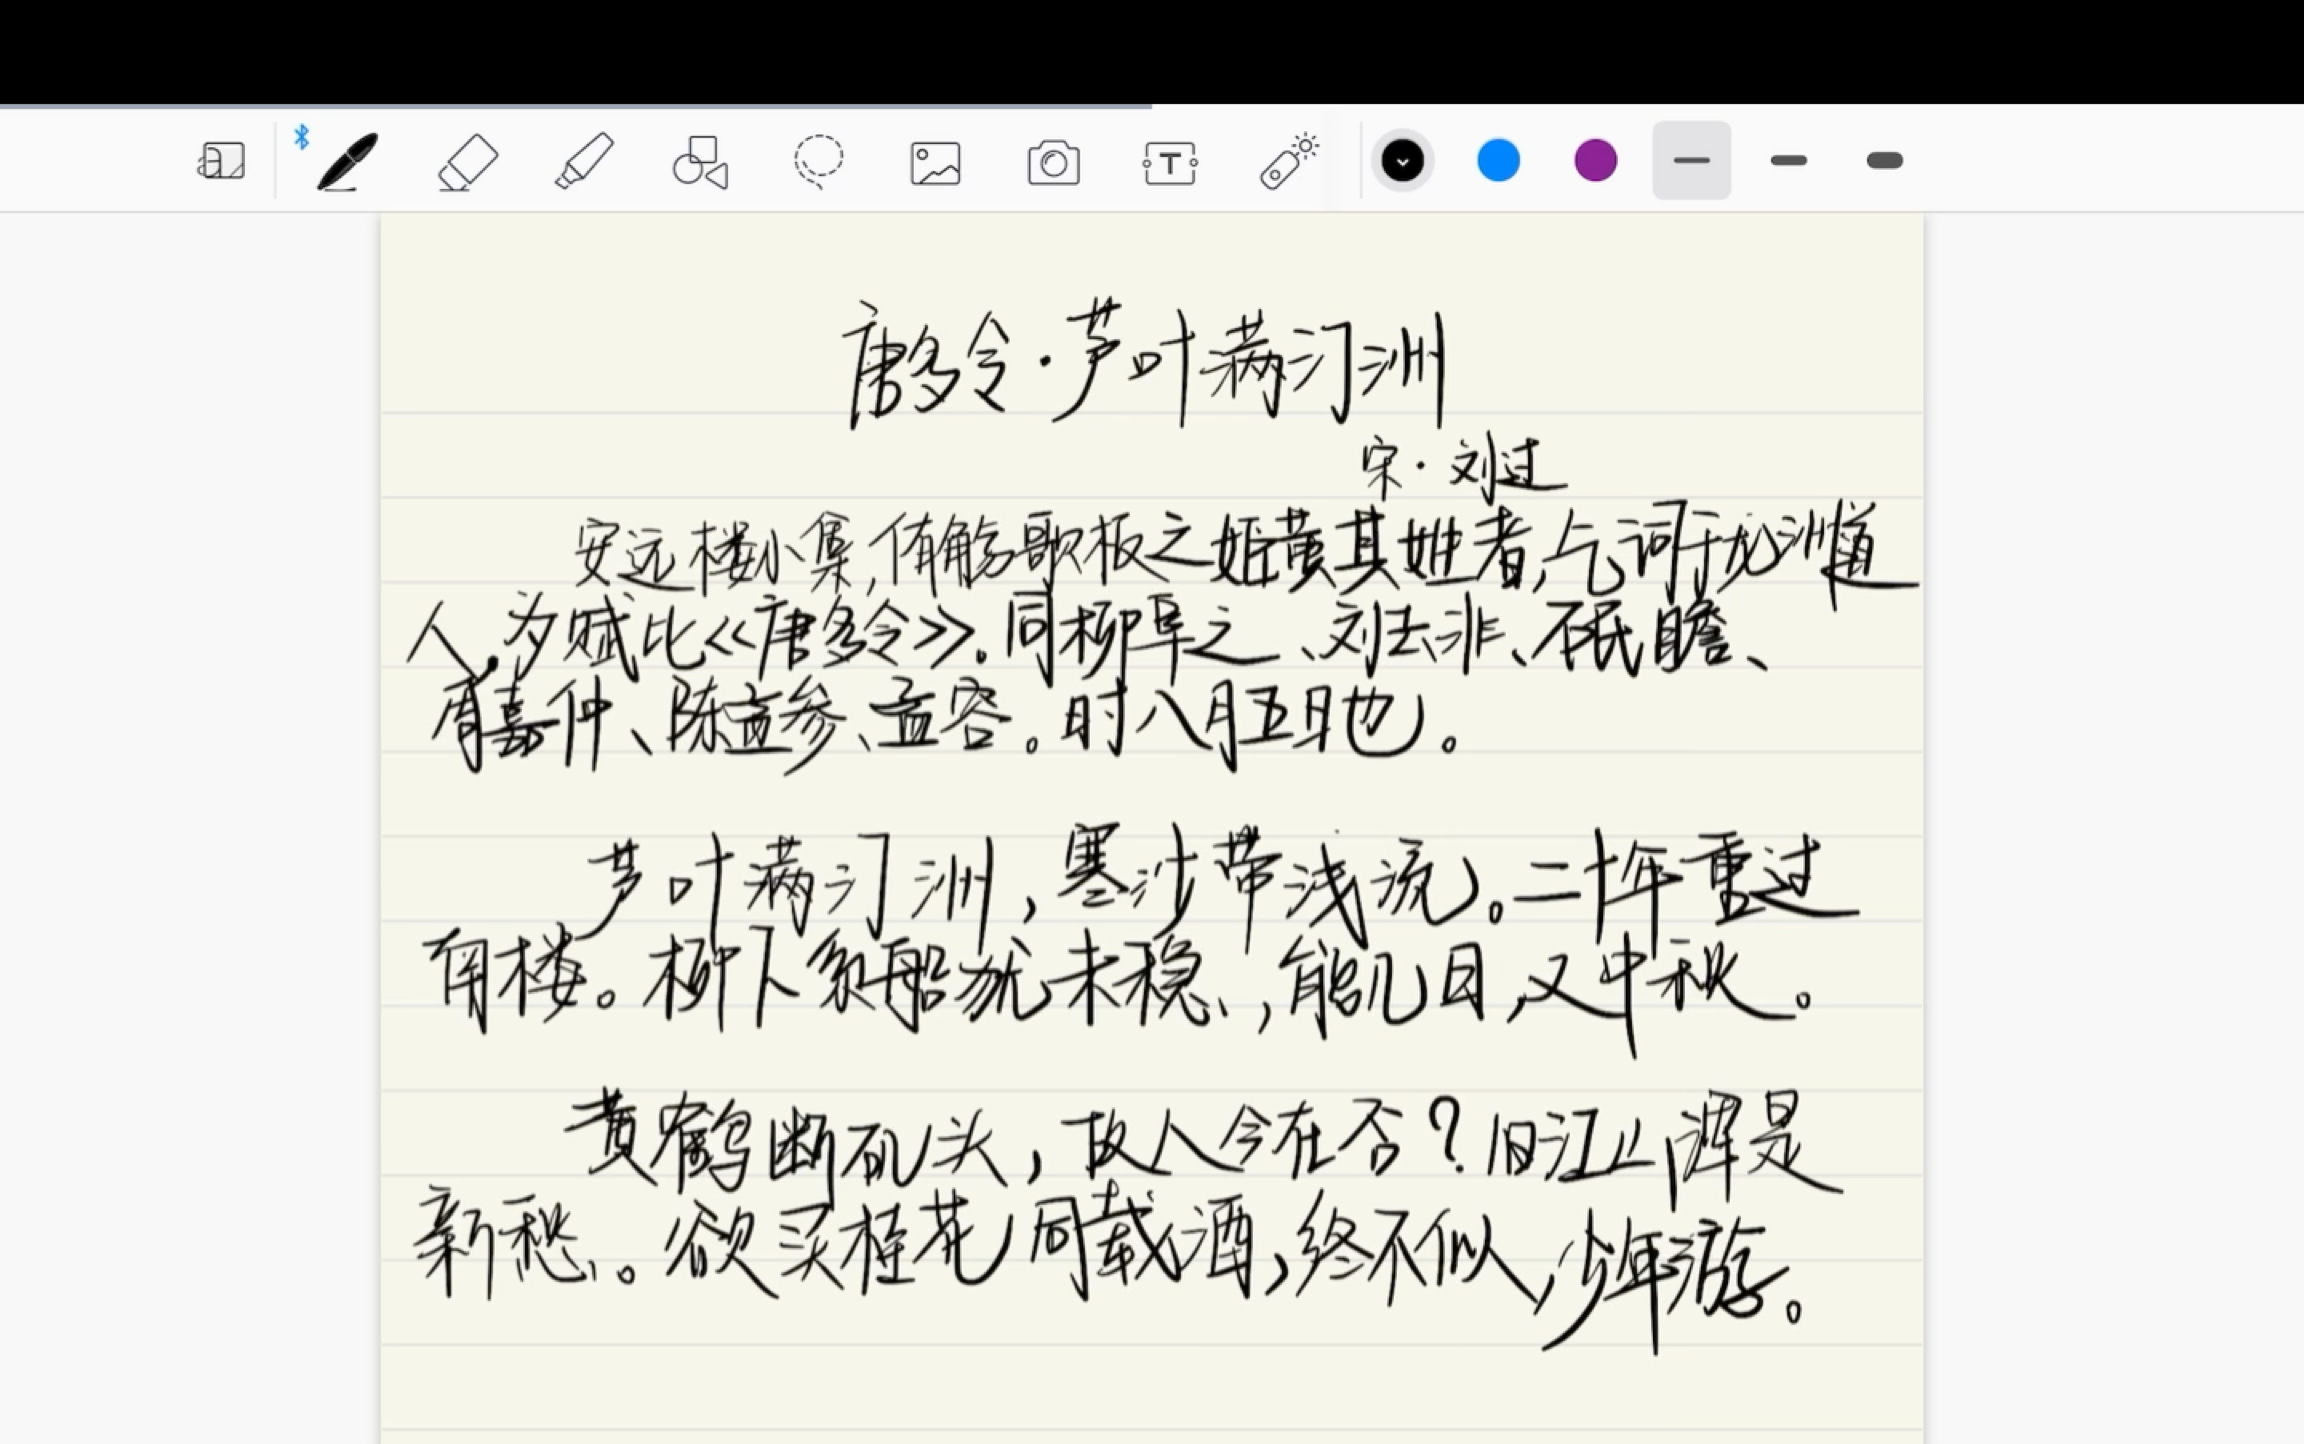 唐多令·芦叶满汀洲
宋·刘过
安远楼小集,侑觞歌板之姬黄其姓者,乞词于龙洲道
人,为赋此《唐多令》。同柳阜之、刘去非、石民瞻、
周嘉仲、陈孟参、孟容。时八月五日也。
芦叶满汀洲,寒沙带浅流。二十年重过
南楼。柳下系船犹未稳,能几日,又中秋。
黄鹤断矶头,故人今在否?旧江山浑是
新愁。欲买桂花同载酒,终不似,少年游。